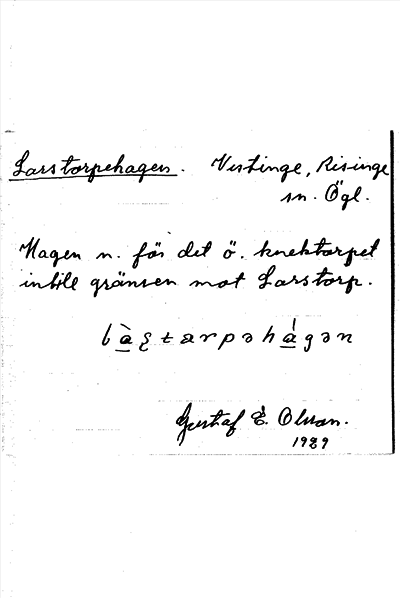 Larstorpehagen. Vistinge, Risinge
sn. Ögl.
Hagen n. för det ö. knektorpet
intill gränsen mot Larstorp.
Gustaf E. Olsson.
1929